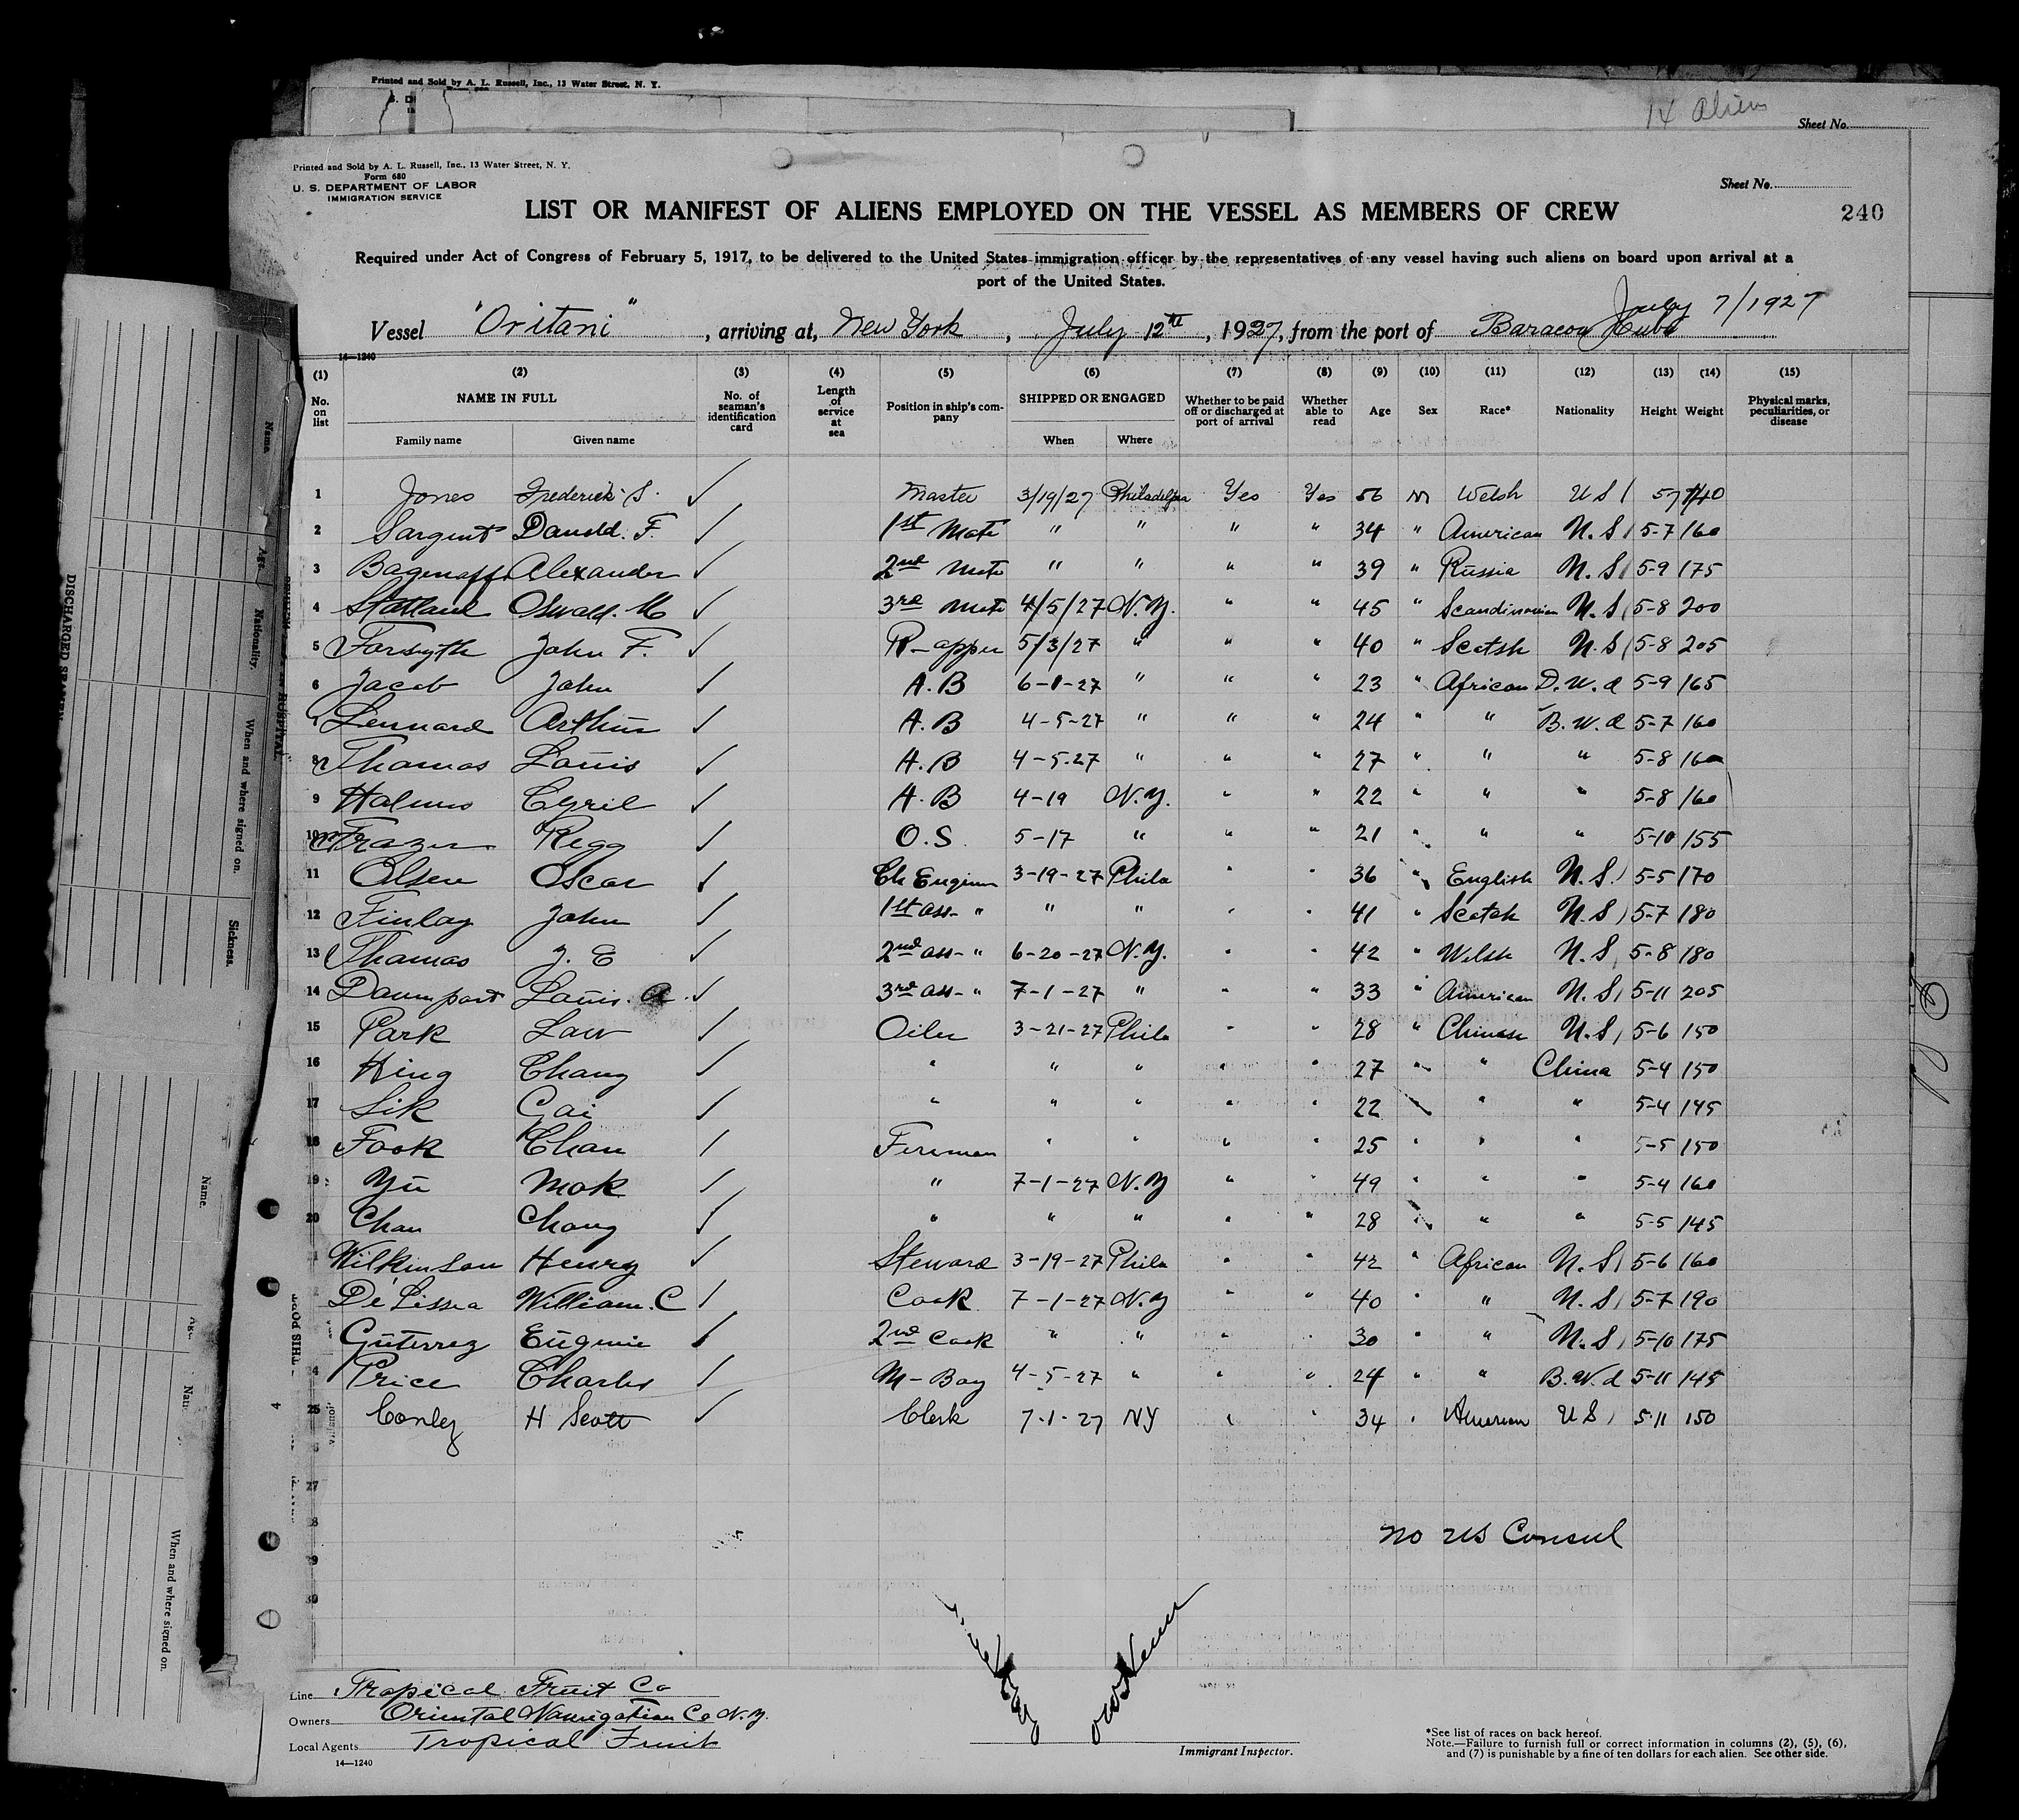 Printed and Sold by A. L. Russell, Inc., 13 Water Street, N. Y.
14 Aliens
Sheet No.
Printed and Sold by A. L. Russell, Inc., 13 Water Street, N. Y.
Form 680
U. S. DEPARTMENT OF LABOR
IMMIGRATION SERVICE
Sheet No.
LIST OR MANIFEST OF ALIENS EMPLOYED ON THE VESSEL AS MEMBERS OF CREW
240
Required under Act of Congress of February 5, 1917, to be delivered to the United States immigration officer by the representatives of any vessel having such aliens on board upon arrival at a
port of the United States.
July 7/1927
Vessel "Oritani", arriving at, New York, July 12th, 1927, from the port of Baracoa Cuba
14-1240
(1) (2) (3) (4) (5) (6) (7) (8) (9) (10) (11) (12) (13) (14) (15)
No. on list NAME IN FULL Family name Given name No. of seaman's identification card Length of service at sea Position in ship's company SHIPPED OR ENGAGED When Where Whether to be paid off or discharged at port of arrival Whether able to read Age Sex Race* Nationality Height Weight Physical marks, peculiarities, or disease
1 Jones Frederick S. ✓ Master 3/19/27 Philadelphia Yes Yes 56 M Welsh US 57 140
2 Sargent Donald. F. ✓ 1st Mate " " " " 34 " American U.S 5-7 160
3 Alexander ✓ 2nd Mate " " " " 39 " Russia U.S 5-9 175
4 Oswald. M ✓ 3rd Mate 4/5/27 N.Y. " " 45 " Scandinavian U.S 5-8 200
5 Forsyth John F. ✓ 5/3/27 " " " 40 " Scotsh U.S 5-8 205
6 Jacob John ✓ A.B 6-1-27 " " " 23 " African D.W.I 5-9 165
7 Lennard Arthur ✓ A.B 4-5-27 " " " 24 " " B.W.I 5-7 160
8 Thomas Louis ✓ A.B 4-5-27 " " " 27 " " " 5-8 160
9 Cyril ✓ A.B 4-19 N.Y. " " 22 " " " 5-8 160
10 Frazer Regg ✓ O.S 5-17 " " " 21 " " " 5-10 155
11 Olsen Oscar ✓ Ch Engineer 3-19-27 Phila " " 36 " English U.S. 5-5 170
12 Finlay John ✓ 1st ass- " " " " " 41 " Scotch U.S 5-7 180
13 Thomas J. E ✓ 2nd ass- " 6-20-27 N.Y. " " 42 " Welsh U.S 5-8 180
14 Davenport Louis. A. ✓ 3rd ass- " 7-1-27 " " " 33 " American U.S 5-11 205
15 Park Law ✓ Oiler 3-21-27 Phila " " 28 " Chinese U.S 5-6 150
16 Hing Chang ✓ " " " " " 27 " " China 5-4 150
17 Sik Gai ✓ " " " " " 22 " " " 5-4 145
18 Fook Chan ✓ Fireman " " " " 25 " " " 5-5 150
19 Yu Mok ✓ " 7-1-27 N.Y " " 49 " " " 5-4 160
20 Chan Chang ✓ " " " " " 28 " " " 5-5 145
Wilkinson Henry ✓ Steward 3-19-27 Phila " " 42 " African U.S 5-6 160
De Lissea William. C ✓ Cook 7-1-27 N.Y " " 40 " " U.S 5-7 190
Guterrez Eugenie ✓ 2nd Cook " " " " 30 " " U.S 5-10 175
24 Price Charles ✓ M-Boy 4-5-27 " " " 24 " " B.W.I 5-11 145
25 Conley H Scott ✓ Clerk 7-1-27 NY " " 34 " American US 5-11 150
27
28
29
30
No US Consul
Line Tropical Fruit Co
Owners Oriental Navigation Co N.Y.
Local Agents Tropical Fruit
14—1240
Immigrant Inspector.
*See list of races on back hereof.
Note.—Failure to furnish full or correct information in columns (2), (5), (6),
and (7) is punishable by a fine of ten dollars for each alien. See other side.
DISCHARGED SEAMEN
Name. Age. Nationality. When and where signed on. Sickness.
Name. Age. When and where signed on.
HOSPITAL
THIS PORT